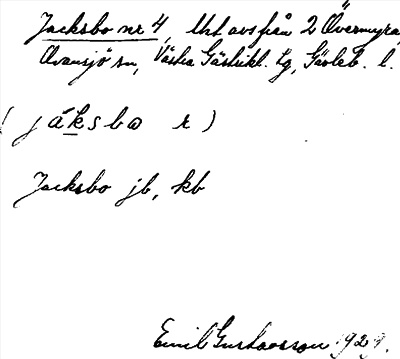 Jacksbo nr 4, lht avs från 2 Övermyra,
Ovansjö sn, Västra Gästrikl. tg, Gävleb. l.
(jáksbω r)
Jacksbo jb, kb
Emil Gustavsson 1929.